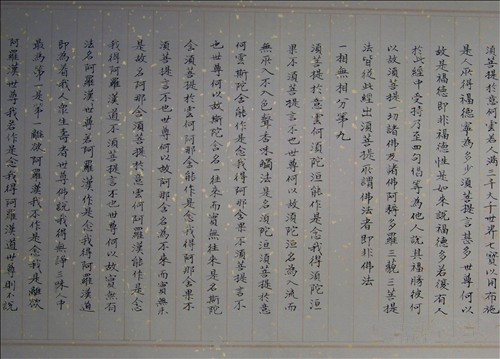 須菩提於意云何若人滿三千大千世界七寶以用布施
是人所得福德寧為多不須菩提言甚多世尊何以
故是福德即非福德性是如來說福德多若復有人
於此經中受持乃至四句偈等為他人說其福勝彼何
以故須菩提一切諸佛及諸佛阿耨多羅三藐三菩提
法皆從此經出須菩提所謂佛法者即非佛法
一相無相分第九
須菩提於意云何須陀洹能作是念我得須陀洹
果不須菩提言不也世尊何以故須陀洹名為入流而
無所入不入色聲香味觸法是名須陀洹須菩提於意
何雲斯陀含能作是念我得阿那含果不須菩提言不
也世尊何以故斯陀含名一往來而實無往來是名斯陀
含須菩提於意云何阿那含能作是念我得阿那含果不
須菩提言不也世尊何以故阿那含名為不來而實無來
是故名阿那含須菩提於意云何阿羅漢能作是念
我得阿羅漢道不須菩提言不也世尊何以故實無有
法名阿羅漢世尊若阿羅漢作是念我得阿羅漢道
即為著我人眾生壽者世尊佛說我得無諍三昧人中
最為第一是第一離欲阿羅漢我不作是念我是離欲
阿羅漢世尊我若作是念我得阿羅漢道世尊則不說